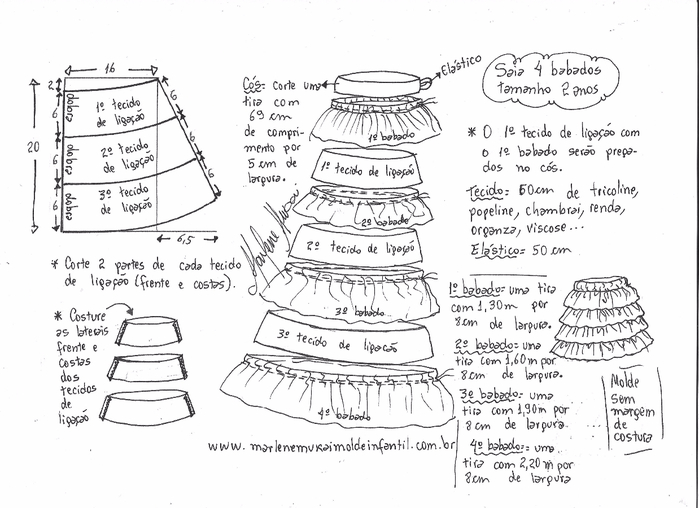 16
2
6
6
6
20
dobra
dobra
dobra
1º tecido
de ligação
2º tecido
de ligação
3º tecido
de ligação
6
6
6
6,5
* Corte 2 partes de cada tecido
de ligação (frente e costas).
* Costure
as laterais
frente e
costas
dos
tecidos
de
ligação
Cós: corte uma
tira com
69 cm
de compri-
mento por
5 cm de
largura.
Elástico
1º babado
1º tecido de ligação
2º babado
2º tecido de ligação
3º babado
3º tecido de ligação
4º babado
Marlene Mukai
www.marlenemukaimoldeinfantil.com.br
Saia 4 babados
tamanho 2 anos
* O 1º tecido de ligação com
o 1º babado serão prega-
dos no cós.
Tecido: 60cm de tricoline,
popeline, chambrai, renda,
organza, viscose...
Elástico: 50 cm
1º babado: uma tira
com 1,30m por
8cm de largura.
2º babado: uma
tira com 1,60m por
8cm de largura.
3º babado: uma
tira com 1,90m por
8cm de largura.
4º babado: uma
tira com 2,20m por
8cm de largura
Molde
sem
margem
de
costura